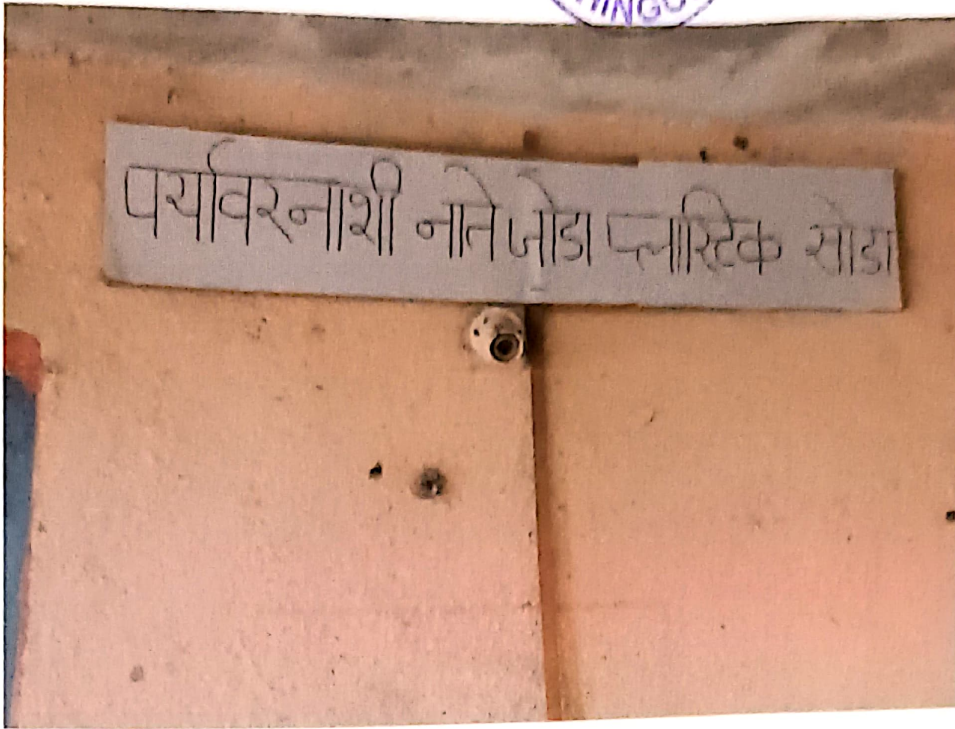 पर्यावरनाशी नाते जोडा प्लास्टिक सोडा